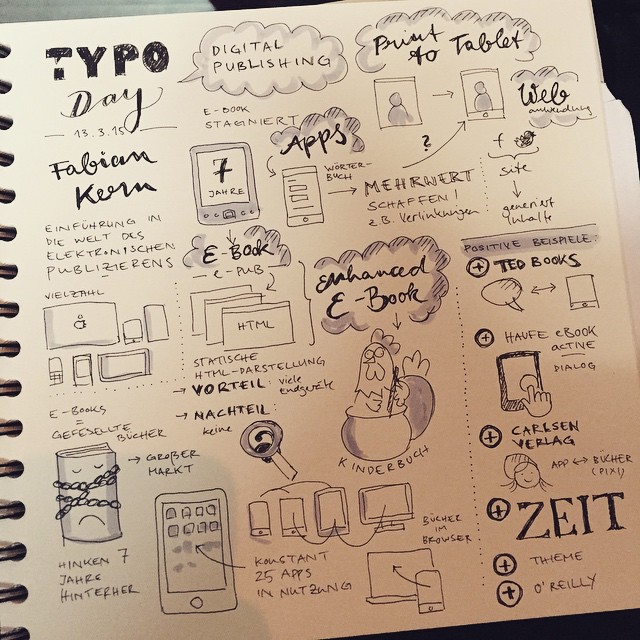 TYPO
Day
13.3.15
Fabian
Kern
EINFÜHRUNG IN
DIE WELT DES
ELEKTRONISCHEN
PUBLIZIERENS
VIELZAHL
E-BOOKS
=
GEFESELLTE BÜCHER
→ GROßER
MARKT
HINKEN 7
JAHRE
HINTERHER
DIGITAL
PUBLISHING
E-BOOK
STAGNIERT
7
JAHRE
Apps
WÖRTER-
BUCH
E-BOOK
e-PUB
HTML
STATISCHE
HTML-DARSTELLUNG
→ VORTEIL: viele
endgeräte
→ NACHTEIL:
keine
KONSTANT
25 APPS
IN NUTZUNG
Print
to Tablet
?
MEHRWERT
SCHAFFEN!
z.B. Verlinkungen
enhanced
E-Book
KINDERBUCH
BÜCHER
IM
BROWSER
Web
anwendung
f
site
generiert
Inhalte
POSITIVE BEISPIELE:
+ TED BOOKS
+ HAUFE eBOOK
ACTIVE
DIALOG
+ CARLSEN
VERLAG
APP ↔ BÜCHER
(PIXI)
+ ZEIT
+ THIEME
+ O'REILLY